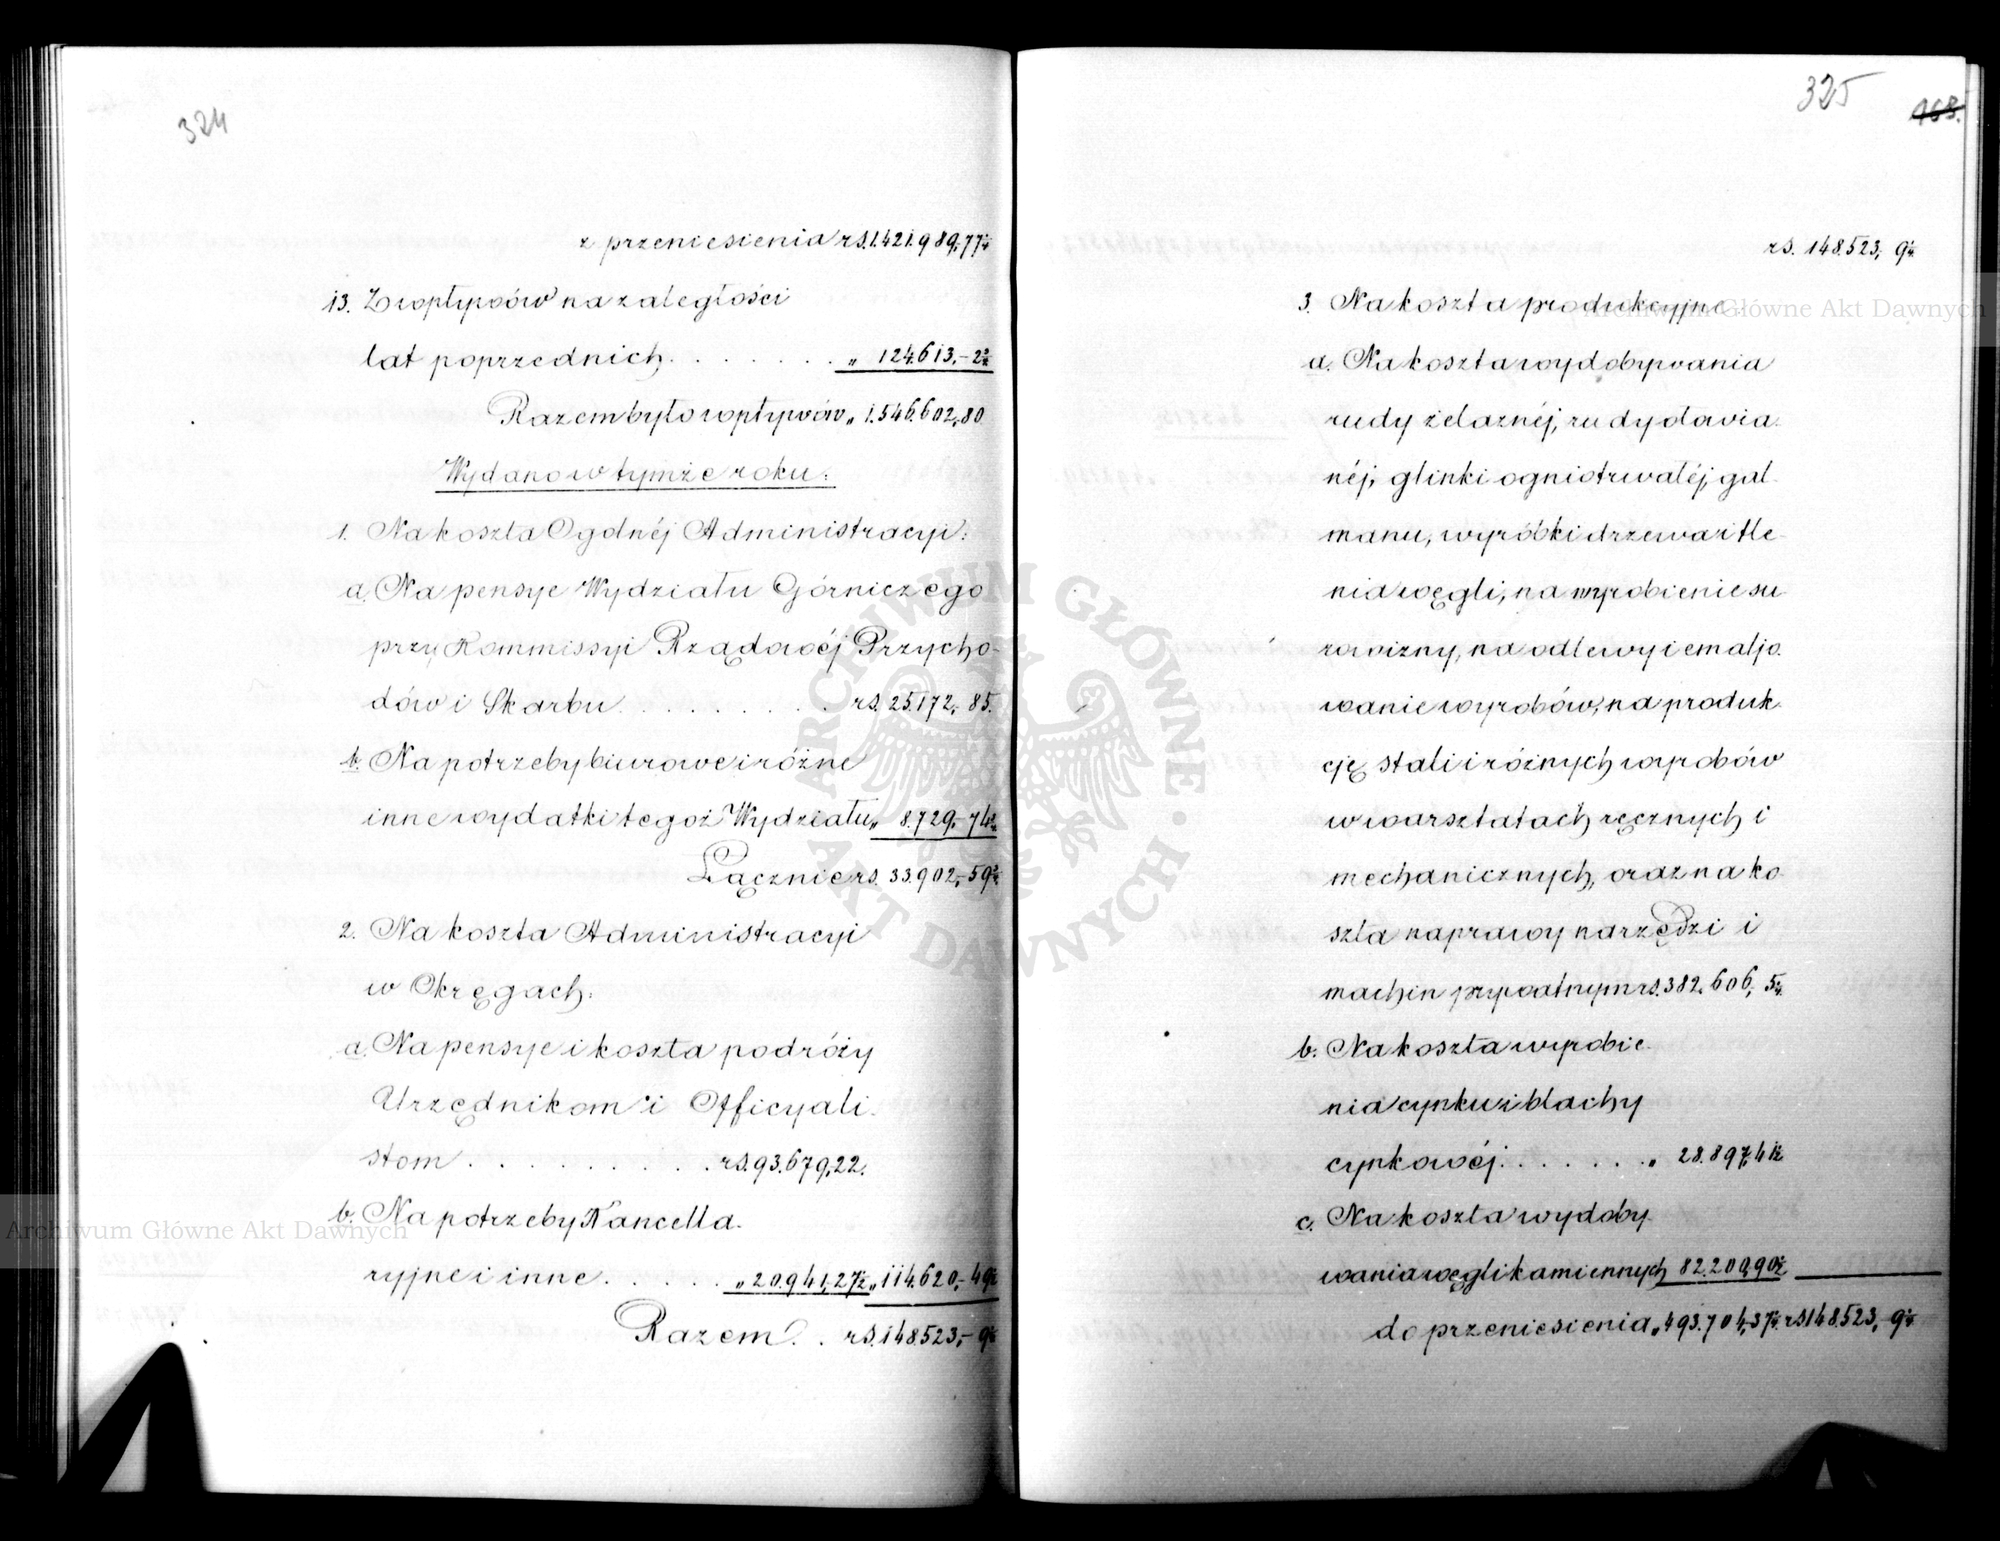 324
z przeniesienia rs. 1.421.989,77½
13. Z wpływów na zaległości
lat poprzednich . . . . . . . „ 124.613,- 2½
Razem było wpływów „ 1.546.602,80
Wydano w tymże roku:
1. Na koszta Ogólnéj Administracyi:
a. Na pensye Wydziału Górniczego
przy Kommissyi Rządowéj Przycho-
dów i Skarbu . . . . . . . . rs. 25.172,- 85.
b. Na potrzeby biurowe i różne
inne wydatki tegoż Wydziału „ 8.729,- 74½
Łącznie rs. 33.902,- 59½
2. Na koszta Administracyi
w Okręgach:
a. Na pensye i koszta podróży
Urzędnikom i Officyali-
stom . . . . . . . . . rs. 93.679,22.
b. Na potrzeby Kancella-
ryjne i inne . . . . . „ 20.941,27½ „ 114.620,- 49½
Razem . . rs. 148.523,- 9¼
325
168.
rs. 148.523,- 9¼
3. Na koszta produkcyjne
a. Na koszta wydobywania
rudy żelaznéj, rudy ołowia-
néj, glinki ogniotrwałéj, gal-
manu, wyróbki drzewa i tle-
nia węgli, na wyrobienie su-
rowizny, na odlewy i emaljo-
wanie wyrobów, na produk-
cję stali i różnych wyrobów
w warsztatach ręcznych i
mechanicznych, oraz na ko-
szta naprawy narzędzi i
machin prywatnym rs. 382.606,- 5¼
b. Na koszta wyrobie-
nia cynku i blachy
cynkowéj . . . . . . . „ 28.897,41½
c. Na koszta wydoby-
wania węgli kamiennych 82.200,90½
do przeniesienia „ 493.704,37¼ rs. 148.523,- 9¼
Archiwum Główne Akt Dawnych
Archiwum Główne Akt Dawnych
ARCHIWUM GŁÓWNE • AKT DAWNYCH •